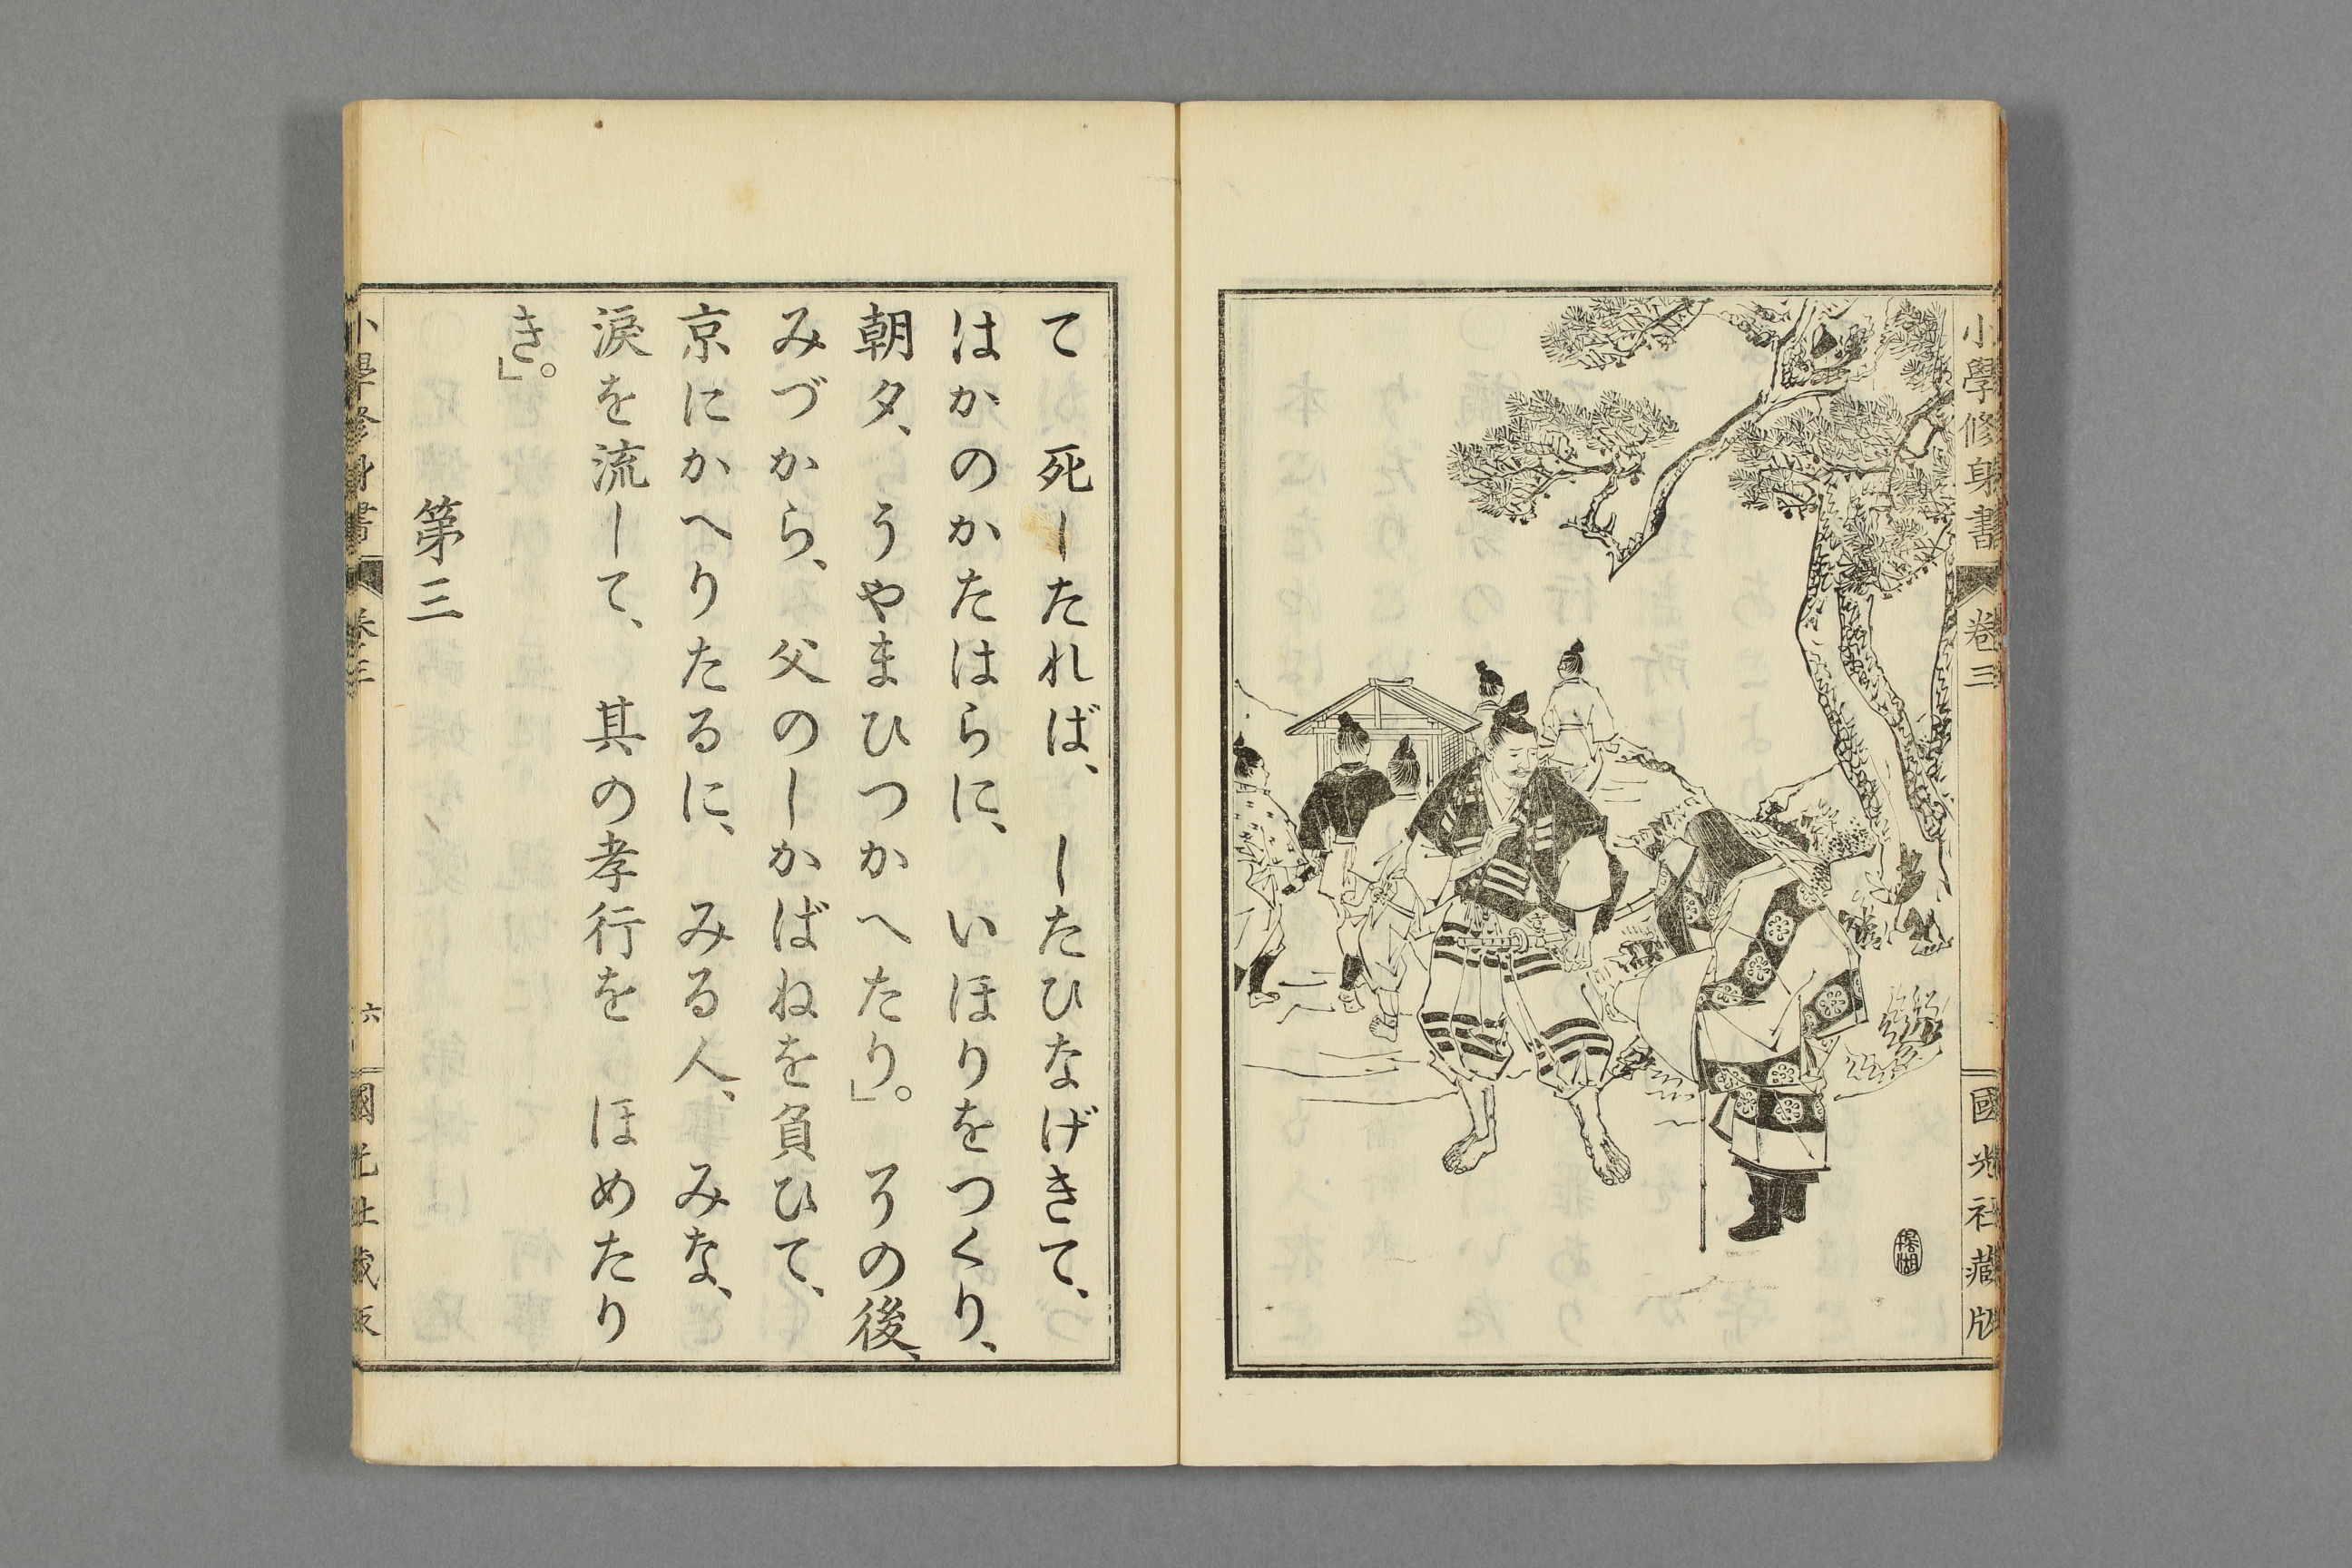 小學修身書 卷三 國光社藏版
て 死したれば、 したひなげきて、
はかのかたはらに、 いほりをつくり、
朝夕、 うやまひつかへたり」。 その後、
みづから、 父のしかばねを負ひて、
京にかへりたるに、 みる人、 みな、
淚を流して、 其の孝行を ほめたり
き」。
第三
小學修身書 卷三 六 國光社藏版